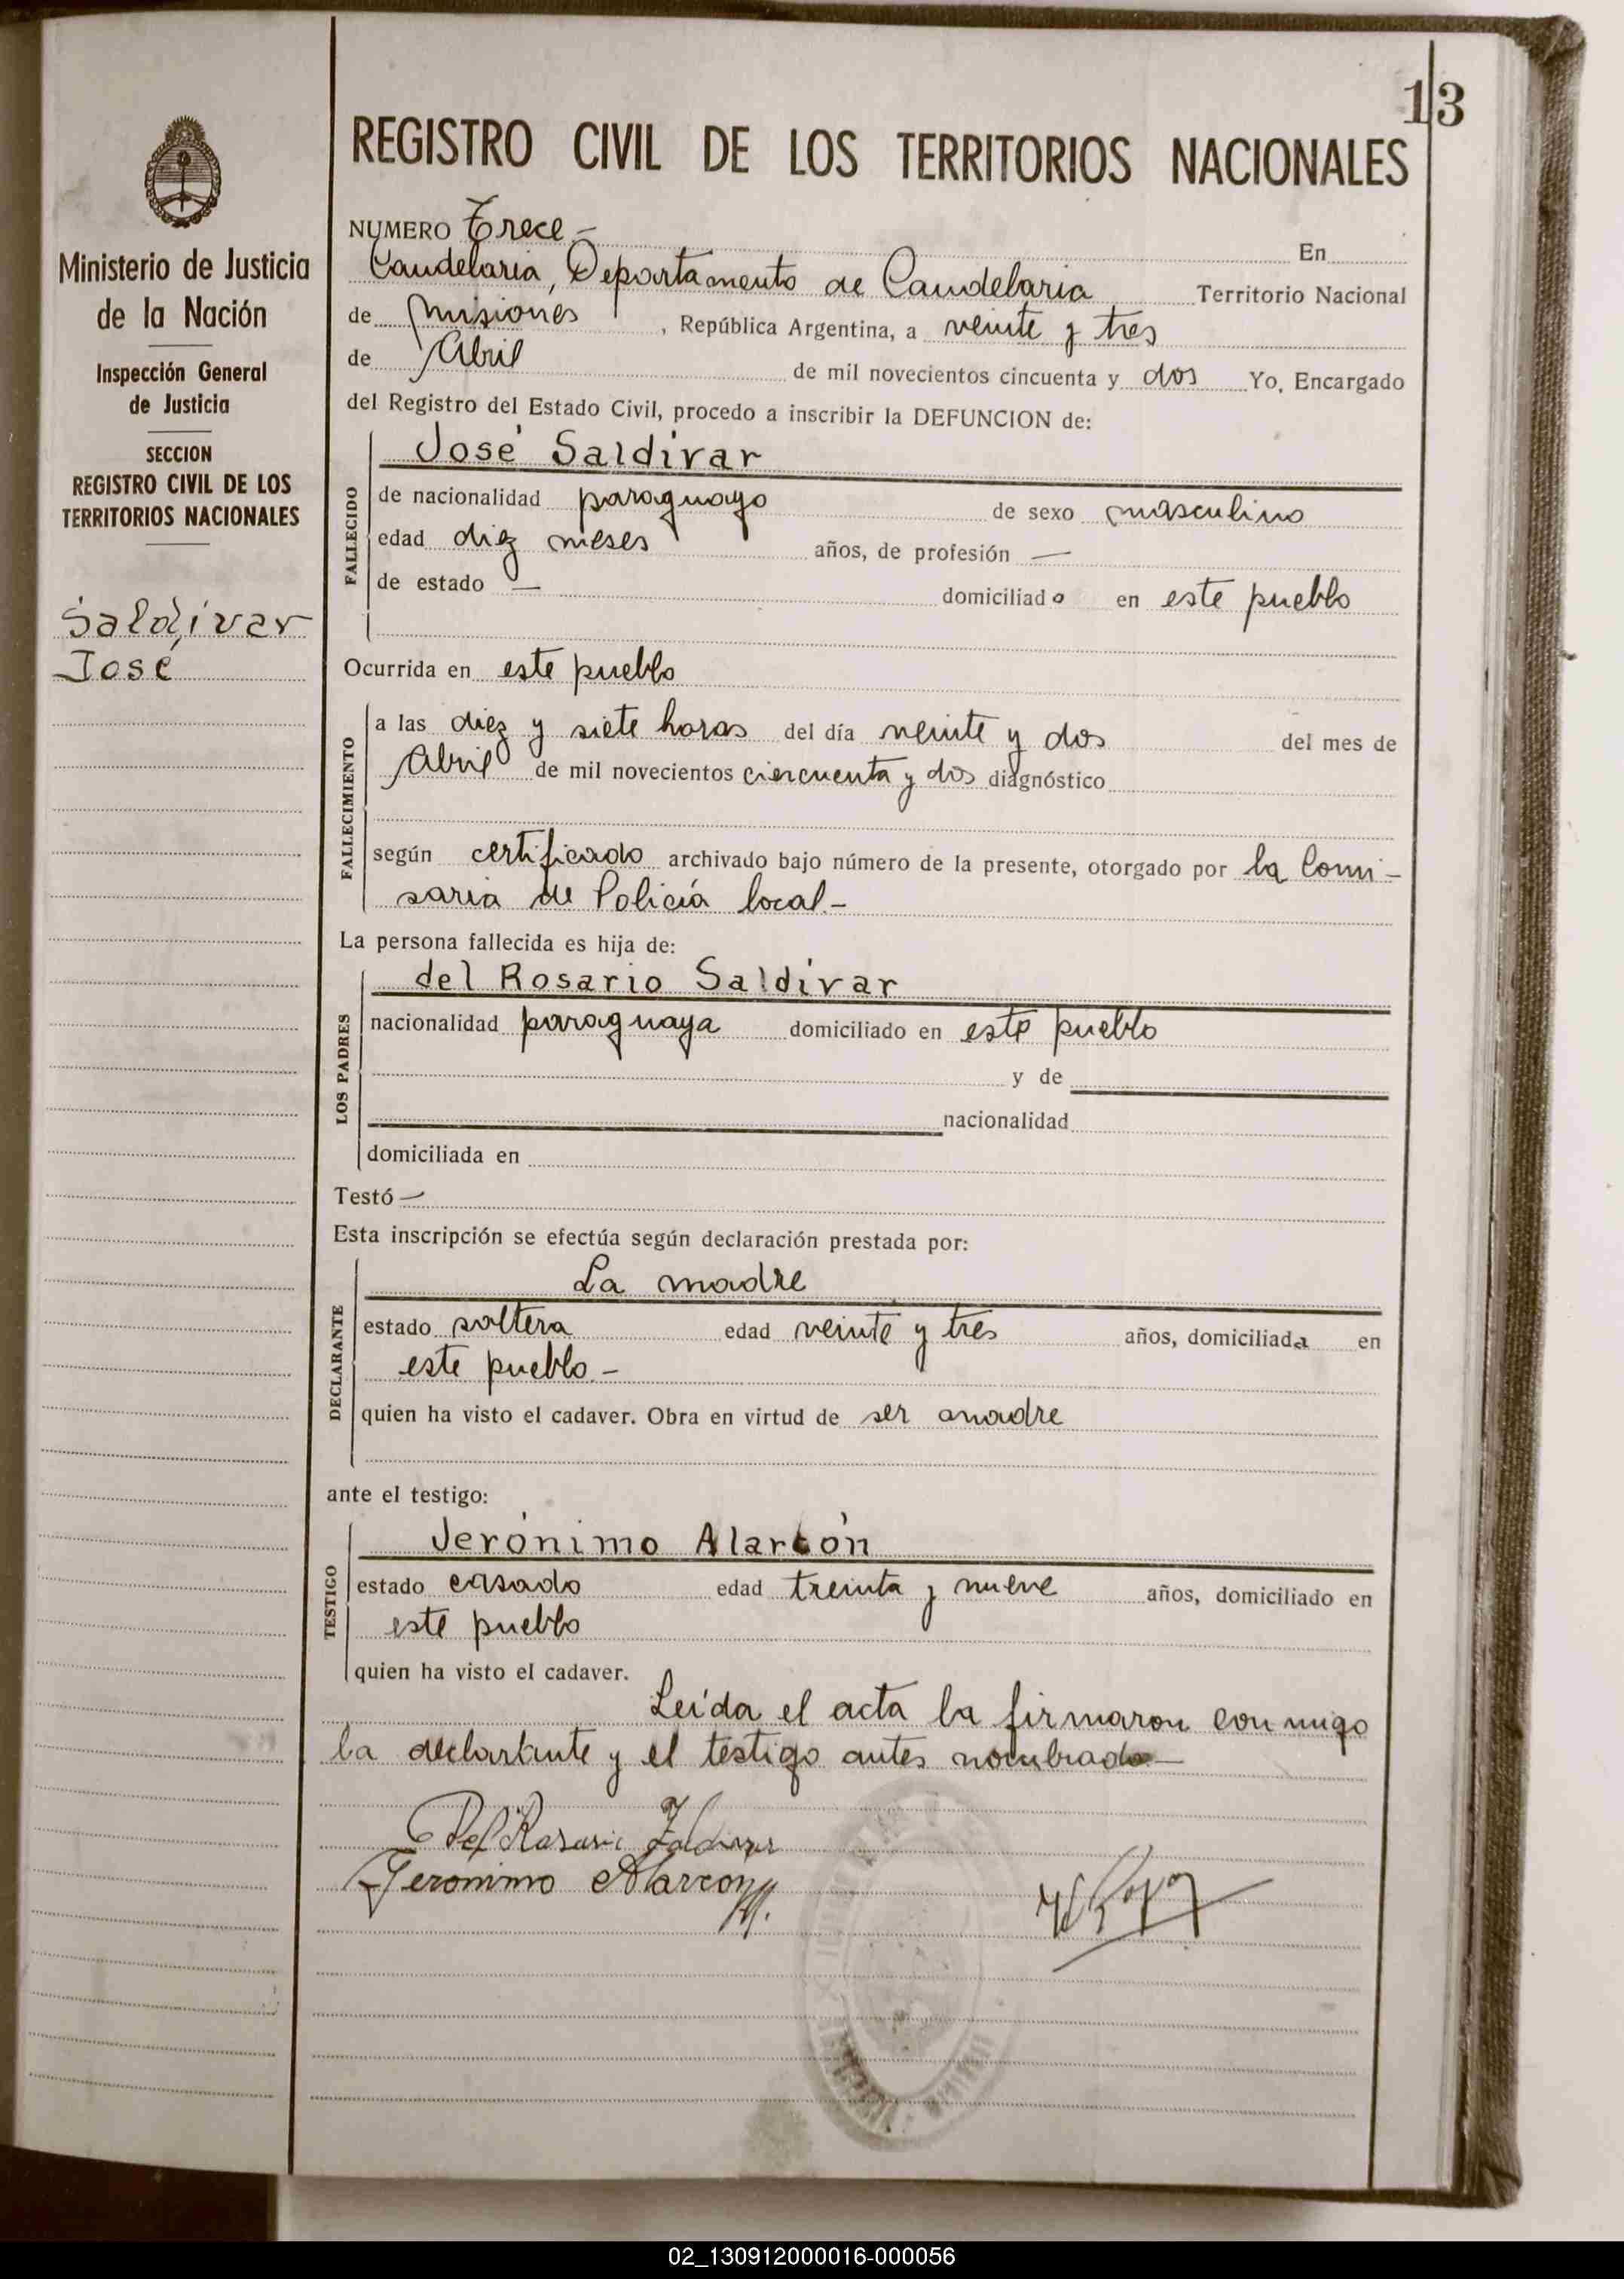 13
REGISTRO CIVIL DE LOS TERRITORIOS NACIONALES
Ministerio de Justicia
de la Nación
Inspección General
de Justicia
SECCION
REGISTRO CIVIL DE LOS
TERRITORIOS NACIONALES
Saldívar
José
NUMERO Trece - En
Candelaria, Departamento de Candelaria Territorio Nacional
de misiones, República Argentina, a veinte y tres
de Abril de mil novecientos cincuenta y dos Yo, Encargado
del Registro del Estado Civil, procedo a inscribir la DEFUNCION de:
José Saldívar
FALLECIDO
de nacionalidad paraguayo de sexo masculino
edad diez meses años, de profesión —
de estado — domiciliado en este pueblo
Ocurrida en este pueblo
FALLECIMIENTO
a las diez y siete horas del día veinte y dos del mes de
Abril de mil novecientos cincuenta y dos diagnóstico
según certificado archivado bajo número de la presente, otorgado por la Comi-
saria de Policía local.-
La persona fallecida es hija de:
del Rosario Saldívar
LOS PADRES
nacionalidad paraguaya domiciliado en este pueblo
y de
nacionalidad
domiciliada en
Testó —
Esta inscripción se efectúa según declaración prestada por:
La madre
DECLARANTE
estado soltera edad veinte y tres años, domiciliada en
este pueblo.-
quien ha visto el cadaver. Obra en virtud de ser madre
ante el testigo:
Jerónimo Alarcón
TESTIGO
estado casado edad treinta y nueve años, domiciliado en
este pueblo
quien ha visto el cadaver.
Leída el acta la firmaron conmigo
la declarante y el testigo antes nombrado—
Del Rosario Zaldivar
Jeronimo Alarcon
02_130912000016-000056